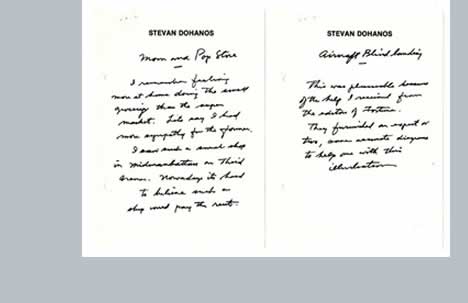 STEVAN DOHANOS
Mom and Pop Store
I remember feeling
more at home doing the small
grocery than the super
market. Lets say I had
more sympathy for the former.
I saw such a small shop
in Midmanhattan on Third
Avenue. Nowadays its hard
to believe such a
shop could pay the rent.
STEVAN DOHANOS
Aircraft Blind landing
This was pleasurable because
of the help I received from
the editors of Fortune.
They furnished an expert or
two, some accurate diagrams
to help me with this
illustration